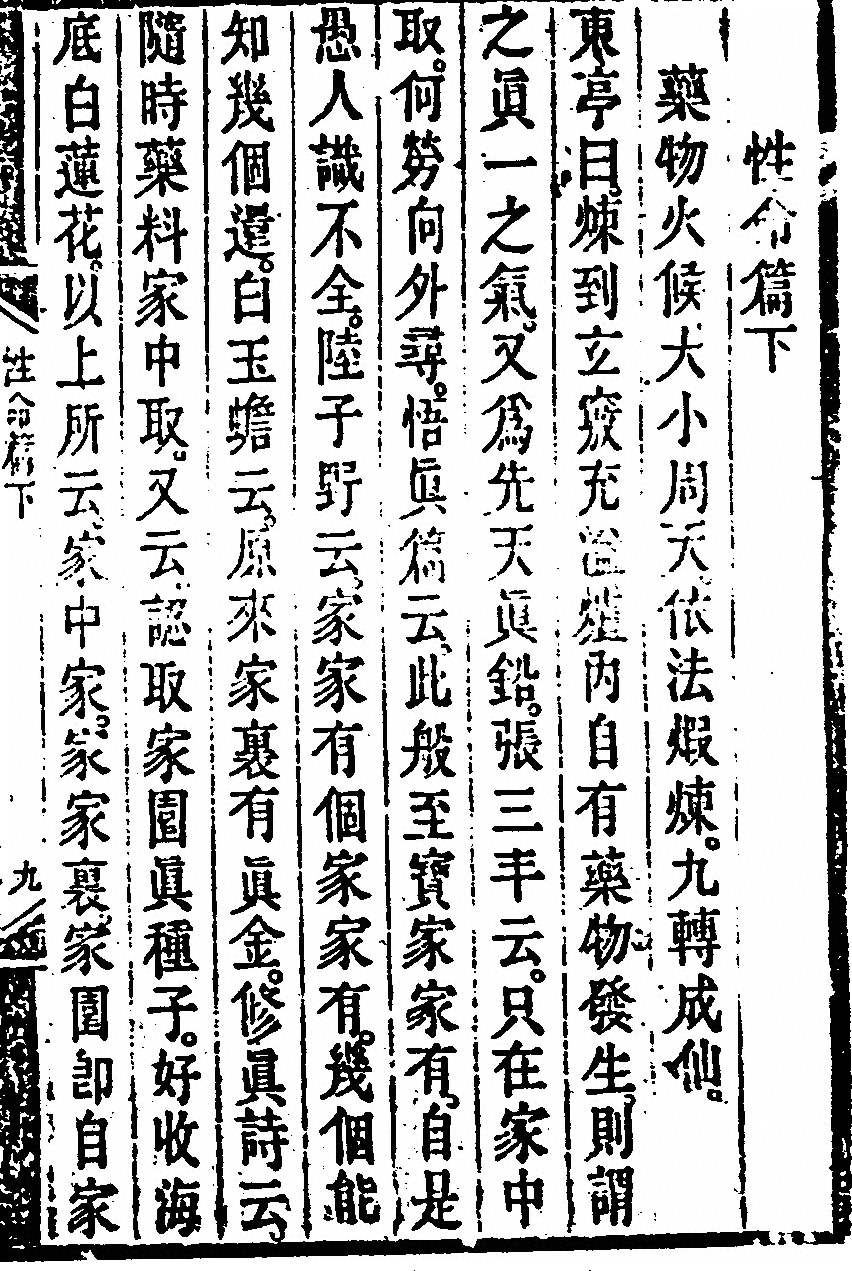 性命篇下
藥物火候大小周天依法煅煉。九轉成仙。
東亭曰。煉到立竅充溢爐內自有藥物發生。則謂
之眞一之氣。又爲先天眞鉛。張三丰云。只在家中
取。何勞向外尋。悟眞篇云。此般至寶家家有。自是
愚人識不全。陸子野云。家家有個家家有。幾個能
知幾個還。白玉蟾云。原來家裏有眞金。修眞詩云。
隨時藥料家中取。又云。認取家園眞種子。好收海
底白蓮花。以上所云。家中家。家家裏。家園卽自家
性命篇下
九